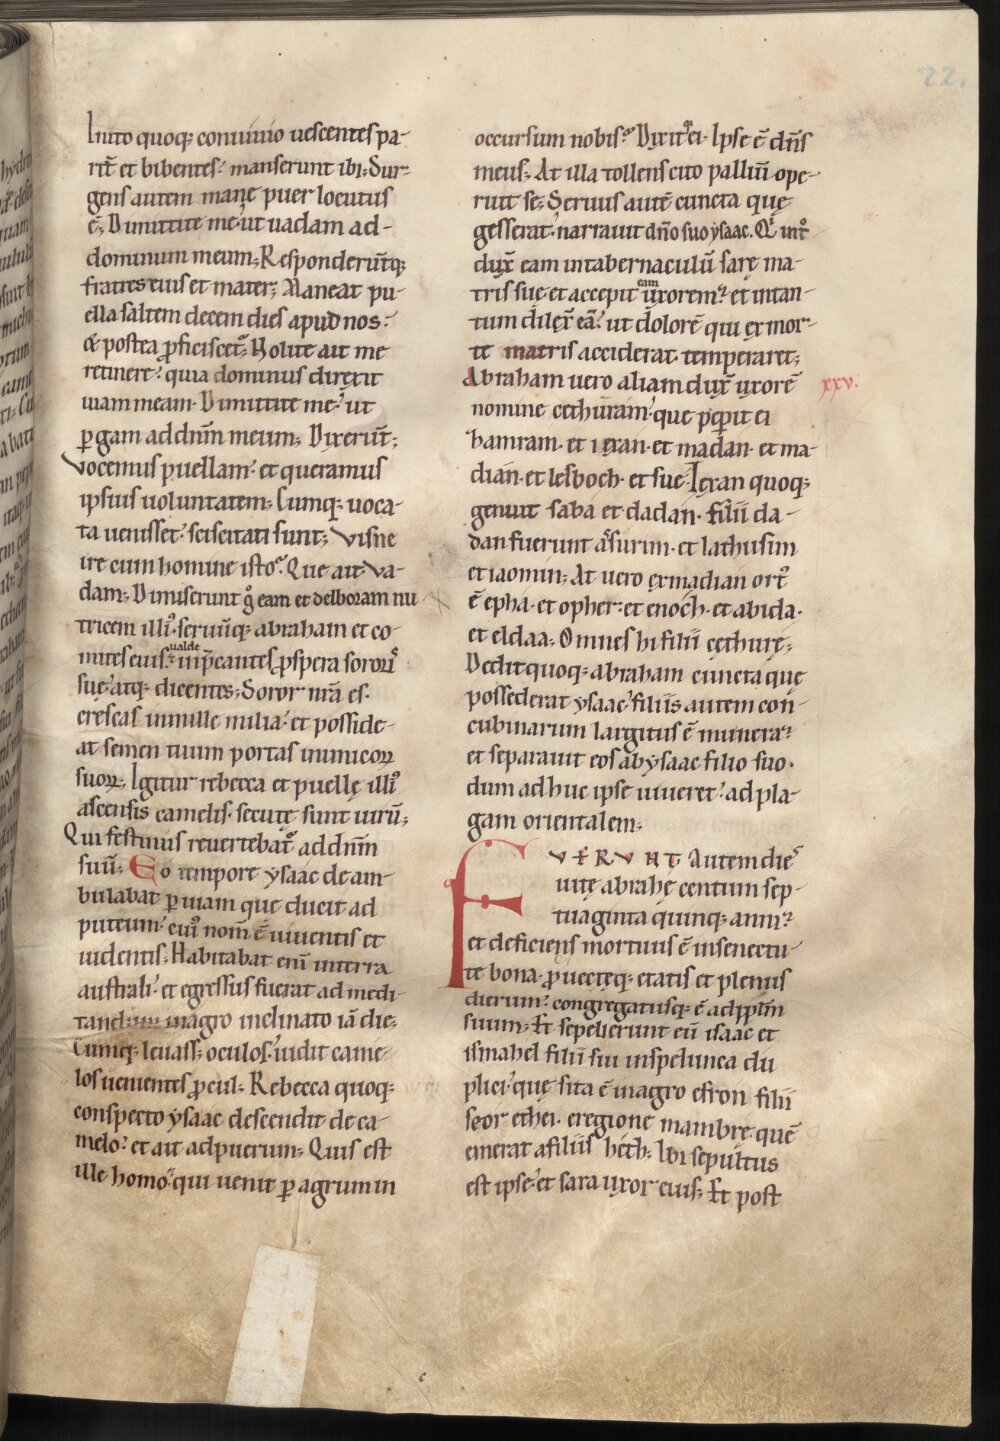 22.
Inito quoq; conuiuio uescentes pa-
rit̄ et bibentes. manserunt ibi; Sur-
gens autem mane puer locutus
ē; Dimittite me ut uadam ad-
dominum meum; Responderūtq;
fratres eius et mater; Maneat pu-
ella saltem decem dies apud nos.
& postea ꝓficiscet̄; Nolite ait me
retinere. quia dominus direxit
uiam meam. Dimittite me. ut
ꝑgam ad dnm̄ meum; Dixerūt;
Vocemus puellam. et queramus
ipsius uoluntatem; Cumq; uoca-
ta uenisset. sciscitati sunt; Visne
ire cum homine isto. Que ait. Va-
dam; Dimiserunt g̊ eam et delboram nu
tricem illi᾿. seruūq; abraham et co-
mites eius. ualde inp̄cantes ꝓspera sorori
sue. atq; dicentes; Soror nr̄a es.
crescas in mille milia. et posside-
at semen tuum portas inimicoꝝ
suoꝝ; Igitur rebecca et puellę illi᾿
ascensis camelis. secutę sunt uirū;
Qui festinus reuertebat᾿ ad dnm̄
suū; Eo tempore ysaac de am-
bulabat ꝑ uiam que ducit ad
puteum. cui᾿ nom̄ ē uiuentis et
uidentis; Habitabat eni̅ in terra
australi. et egressus fuerat ad medi-
tandum in agro inclinato iā die;
Cumq; leuass; oculos. uidit came-
los uenientes ꝓcul; Rebecca quoq;
conspecto ysaac descendit de ca-
melo. et ait ad puerum; Quis est
ille homo. qui uenit ꝑ agrum in
occursum nobis. Dixit q̄ ei. Ipse ē dn̄s
meus; At illa tollens cito palliū. ope-
ruit se; Seruus autē cuncta quę
gesserat. narrauit dn̄o suo ysaac. Qi int᾿
dux̄ eam in tabernaculū sarę ma-
tris suę et accepit eam uxorem. et intan-
tum dilex̄ eā. ut dolorē qui ex mor-
te matris acciderat. temperaret;
Abraham uero aliam dux̄ uxorē
xxv.
nomine cethuram. que peꝑit ei
hamram. et iexan. et madan. et ma-
dian. et lesboch. et sue. Iexan quoq;
genuit saba et dadan. filii da-
dan fuerunt asurim. et lathusim
et laomin; At uero ex madian ort᾿
ē epha. et opher. et enoch. et abida.
et eldaa; Omnes hi filii cethurę;
Dedit quoq; abraham cuncta que
possederat ysaac. filiis autem con-
cubinarum largitus ē munera.
et separauit eos ab ysaac filio suo.
dum adhuc ipse uiueret. ad pla-
gam orientalem;
FVERVNT Autem dies
uitę abrahę centum sep-
tuaginta quinq; anni.
et deficiens mortuus ē in senectu-
te bona. ꝓuectęq; etatis et plenus
dierum. congregatusq; ē ad ppłm
suum; Et sepelierunt eū isaac et
ismahel filii sui in spelunca du
plici. quę sita ē in agro efron filii
seor ethei. eregione mambre. quē
emerat a filiis heth; Ibi sepultus
est ipse. et sara uxor eius; Et post